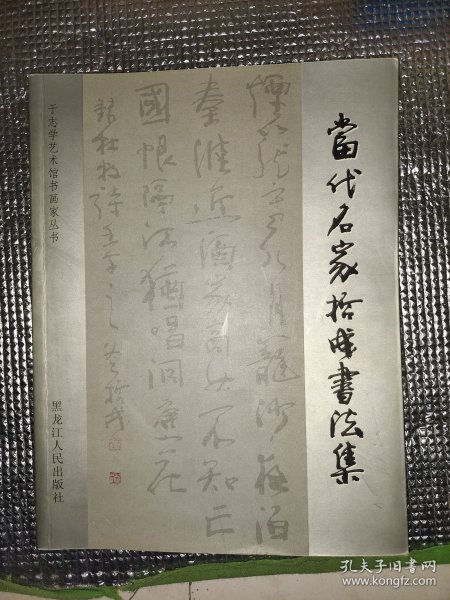 當代名家拾成書法集
煙籠寒水月籠沙夜泊
秦淮近酒家商女不知亡
國恨隔江猶唱後庭花
錄杜牧詩壬午之冬
于志学艺术馆书画家丛书
黑龙江人民出版社
孔夫子旧书网
www.kongfz.com